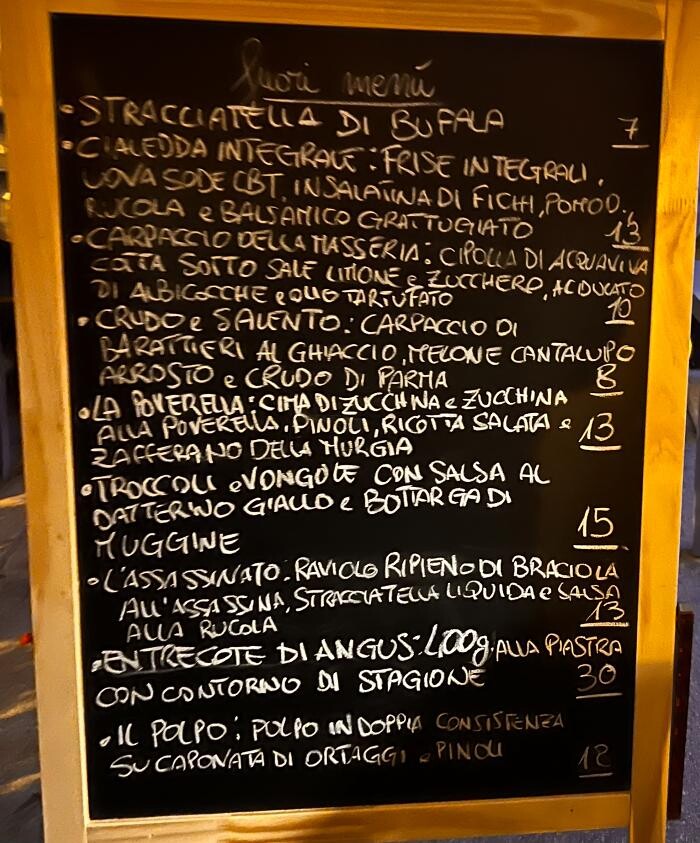 fuori menù
• STRACCIATELLA DI BUFALA 7
• CIALEDDA INTEGRALE: FRISE INTEGRALI,
UOVA SODE CBT, INSALATINA DI FICHI, POMOD.,
RUCOLA e BALSAMICO GRATTUGIATO 13
• CARPACCIO DELLA MASSERIA: CIPOLLA DI ACQUAVIVA
COTTA SOTTO SALE LIMONE e ZUCCHERO, ACIDULATO
DI ALBICOCCHE e OLIO TARTUFATO 10
• CRUDO e SALENTO: CARPACCIO DI
BARATTIERI AL GHIACCIO, MELONE CANTALUPO
ARROSTO e CRUDO DI PARMA 8
• LA POVERELLA: CIMA DI ZUCCHINA e ZUCCHINA
ALLA POVERELLA, PINOLI, RICOTTA SALATA e 13
ZAFFERANO DELLA MURGIA
• TROCCOLI e VONGOLE CON SALSA AL
DATTERINO GIALLO e BOTTARGA DI
MUGGINE 15
• L'ASSASSINATO: RAVIOLO RIPIENO DI BRACIOLA
ALL'ASSASSINA, STRACCIATELLA LIQUIDA e SALSA
ALLA RUCOLA 13
• ENTRECOTE DI ANGUS: 400g. ALLA PIASTRA
CON CONTORNO DI STAGIONE 30
• IL POLPO: POLPO IN DOPPIA CONSISTENZA
SU CAPONATA DI ORTAGGI e PINOLI